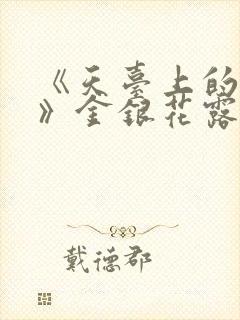 《天臺上的
》金銀花露
戴德郡